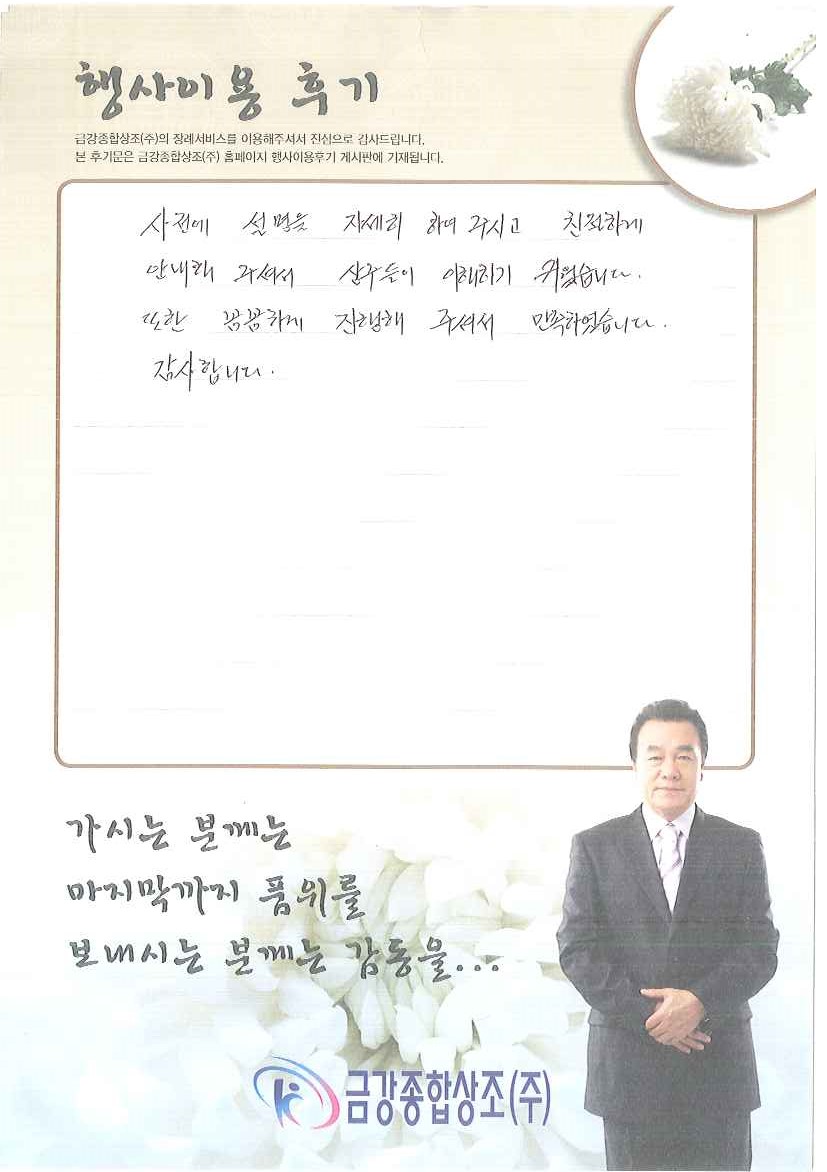 행사이용 후기
금강종합상조(주)의 장례서비스를 이용해주셔서 진심으로 감사드립니다.
본 후기문은 금강종합상조(주) 홈페이지 행사이용후기 게시판에 기재됩니다.
사전에 설명을 자세히 하여 주시고 친절하게
안내해 주셔서 상주들이 이해하기 쉬웠습니다.
또한 꼼꼼하게 진행해 주셔서 만족하였습니다.
감사합니다.
가시는 분께는
마지막까지 품위를
보내시는 분께는 감동을...
금강종합상조(주)